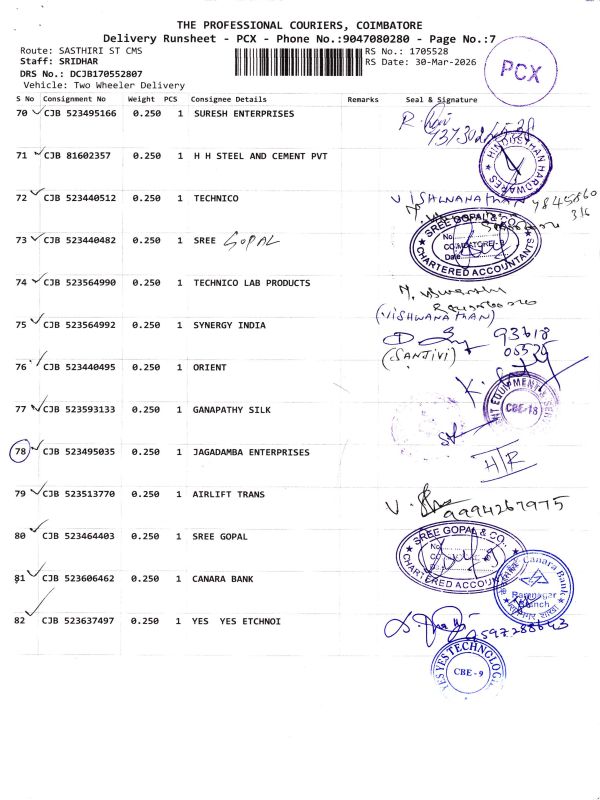 THE PROFESSIONAL COURIERS, COIMBATORE
Delivery Runsheet - PCX - Phone No.:9047080280 - Page No.:7
Route: SASTHIRI ST CMS
RS No.: 1705528
Staff: SRIDHAR
RS Date: 30-Mar-2026
PCX
DRS No.: DCJB170552807
Vehicle: Two Wheeler Delivery
S No Consignment No Weight PCS Consignee Details Remarks Seal & Signature
70 CJB 523495166 0.250 1 SURESH ENTERPRISES
71 CJB 81602357 0.250 1 H H STEEL AND CEMENT PVT
HINDUSTHAN HARDWARES
72 CJB 523440512 0.250 1 TECHNICO
73 CJB 523440482 0.250 1 SREE GOPAL
SREE GOPAL &
No.
COIMBATORE - 9
Date
CHARTERED ACCOUNTANTS
74 CJB 523564990 0.250 1 TECHNICO LAB PRODUCTS
(VISHWANATHAN)
75 CJB 523564992 0.250 1 SYNERGY INDIA
93618
(SANJIVI) 05525
76 CJB 523440495 0.250 1 ORIENT
77 CJB 523593133 0.250 1 GANAPATHY SILK
CBE-18
78 CJB 523495035 0.250 1 JAGADAMBA ENTERPRISES
H/R
79 CJB 523513770 0.250 1 AIRLIFT TRANS
9994267975
80 CJB 523464403 0.250 1 SREE GOPAL
SREE GOPAL & CO.,
CHARTERED ACCOUNTANTS
81 CJB 523606462 0.250 1 CANARA BANK
Canara Bank
Ramnagar
Branch
82 CJB 523637497 0.250 1 YES YES ETCHNOI
9597288643
YES YES TECHNOLOG
CBE - 9